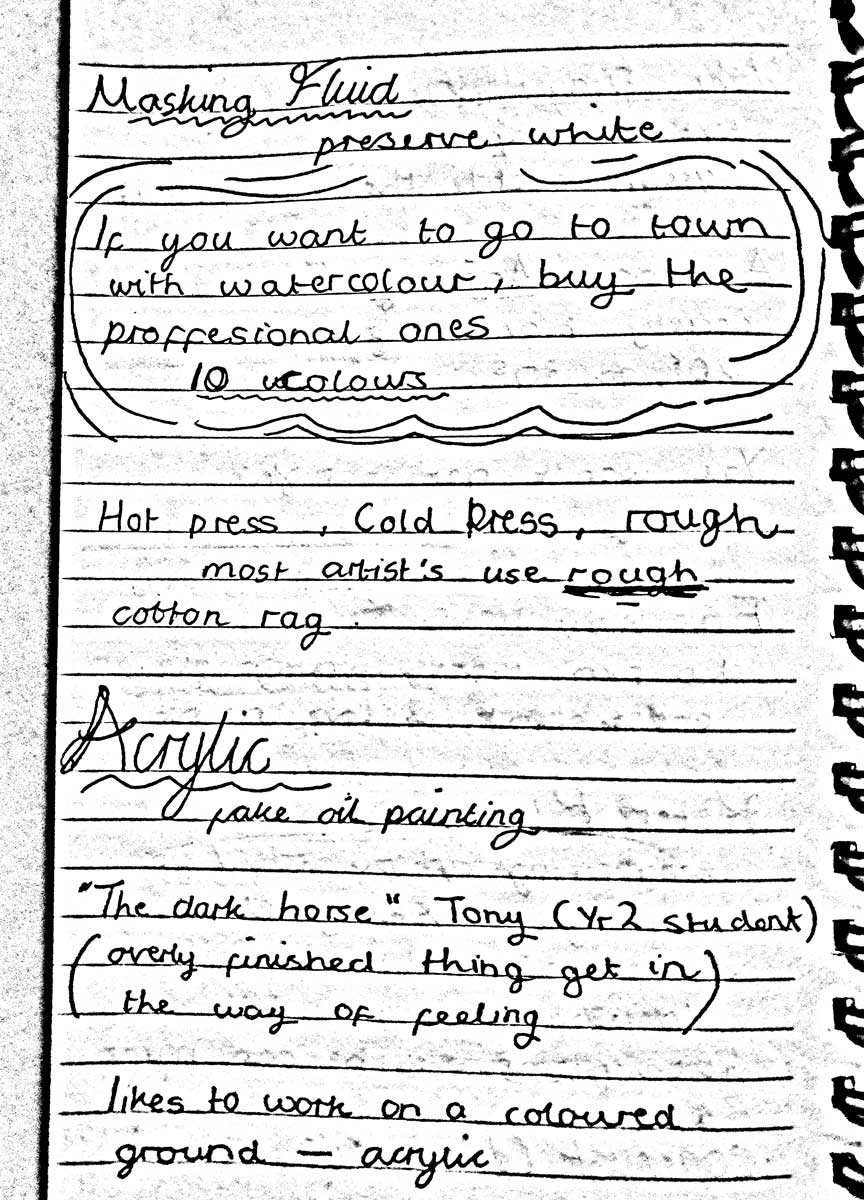 Masking Fluid
preserve white
If you want to go to town
with watercolour, buy the
proffesional ones
10 colours
Hot press, Cold Press, rough
most artist's use rough
cotton rag.
Acrylic
fake oil painting
"The dark horse" Tony (Yr2 student)
(overly finished thing get in
the way of feeling)
likes to work on a coloured
ground — acrylic